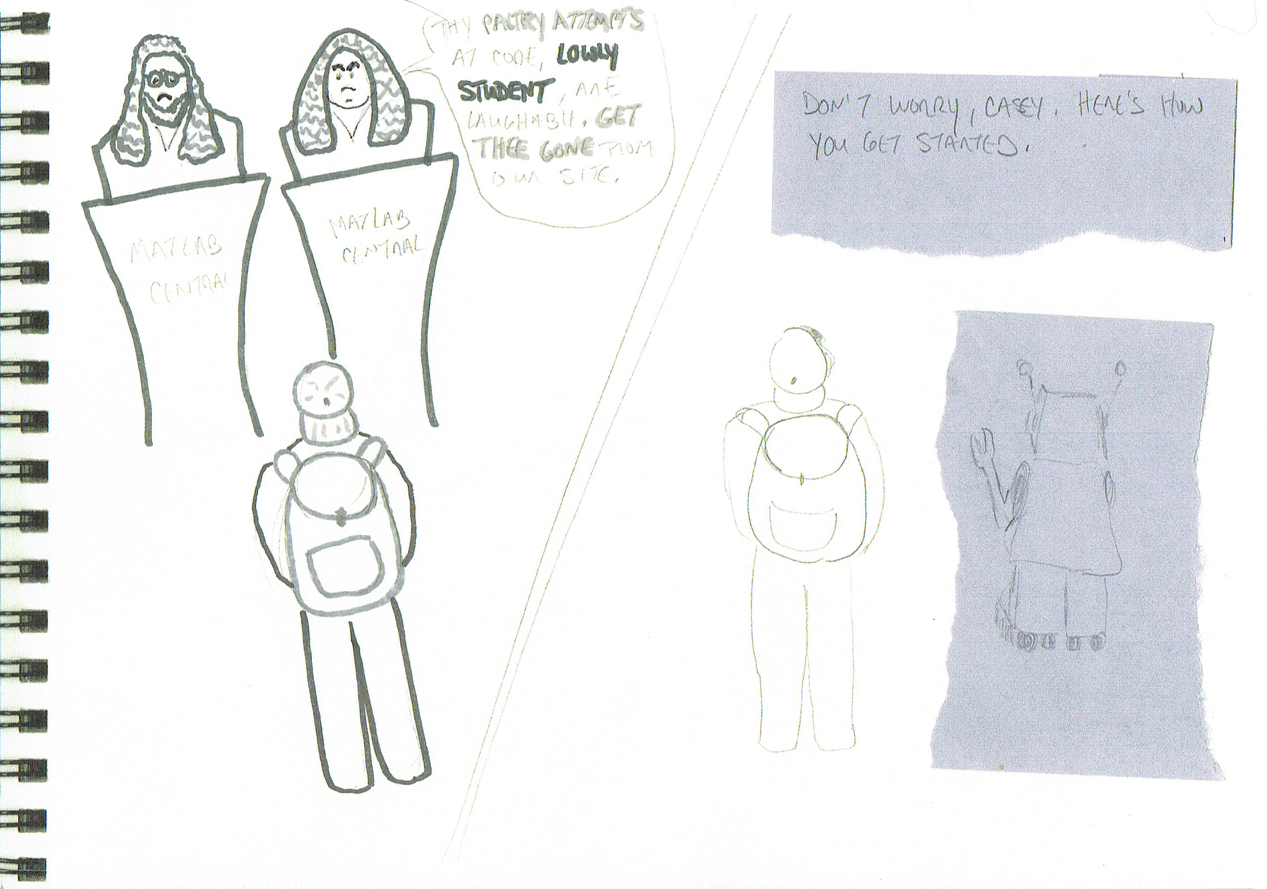 THY PALTRY ATTEMPTS
AT CODE, LOWLY
STUDENT, ARE
LAUGHABLE. GET
THEE GONE FROM
OUR SITE.
MATLAB
CENTRAL
MATLAB
CENTRAL
DON'T WORRY, CASEY. HERE'S HOW
YOU GET STARTED.